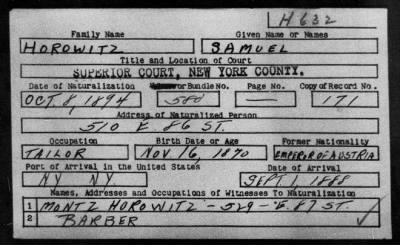 H632
Family Name Given Name or Names
HOROWITZ SAMUEL
Title and Location of Court
SUPERIOR COURT, NEW YORK COUNTY.
Date of Naturalization or Bundle No. Page No. Copy of Record No.
OCT. 8, 1894 580 — 171
Address of Naturalized Person
510 E. 86 ST.
Occupation Birth Date or Age Former Nationality
TAILOR NOV 16, 1870 EMPEROR OF AUSTRIA
Port of Arrival in the United States Date of Arrival
NY NY SEPT 1, 1888
Names, Addresses and Occupations of Witnesses To Naturalization
1 MONTZ HOROWITZ - 529 - E. 87 ST.
2 BARBER